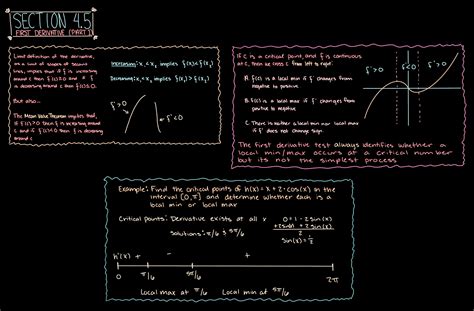 SECTION 4.5
FIRST DERIVATIVE (PART 1)
Limit definition of the derivative,
as a limit of slopes of secant
lines, implies that if f is increasing
around c then f'(c) ≥ 0 and if f
is decreasing around c then f'(c) ≤ 0.
But also...
The Mean Value Theorem implies that,
if f'(c) > 0 then f is increasing around
c and if f'(c) < 0 then f is decreasing
around c
Increasing: x₁ < x₂ implies f(x₁) < f(x₂)
Decreasing: x₁ < x₂ implies f(x₁) > f(x₂)
f' > 0
f' < 0
If c is a critical point, and f is continuous
at c, then as cross c from left to right:
A. f(c) is a local min if f' changes from
negative to positive
B. f(c) is a local max if f' changes from
positive to negative
C. There is neither a local min nor local max
if f' does not change sign.
f' > 0
f' < 0
f' > 0
The first derivative test always identifies whether a
local min/max occurs at a critical number
but its not the simplest process
Example: Find the critical points of h(x) = x + 2 · cos(x) on the
interval [0, π] and determine whether each is a
local min or local max
Critical Points: Derivative exists at all x
Solutions: π/6 & 5π/6
0 = 1 - 2 sin(x)
+2 sin(x) + 2 sin(x)
2
sin(x) = 1/2
h'(x) +
-
+
0
π/6
5π/6
2π
Local max at π/6
Local min at 5π/6